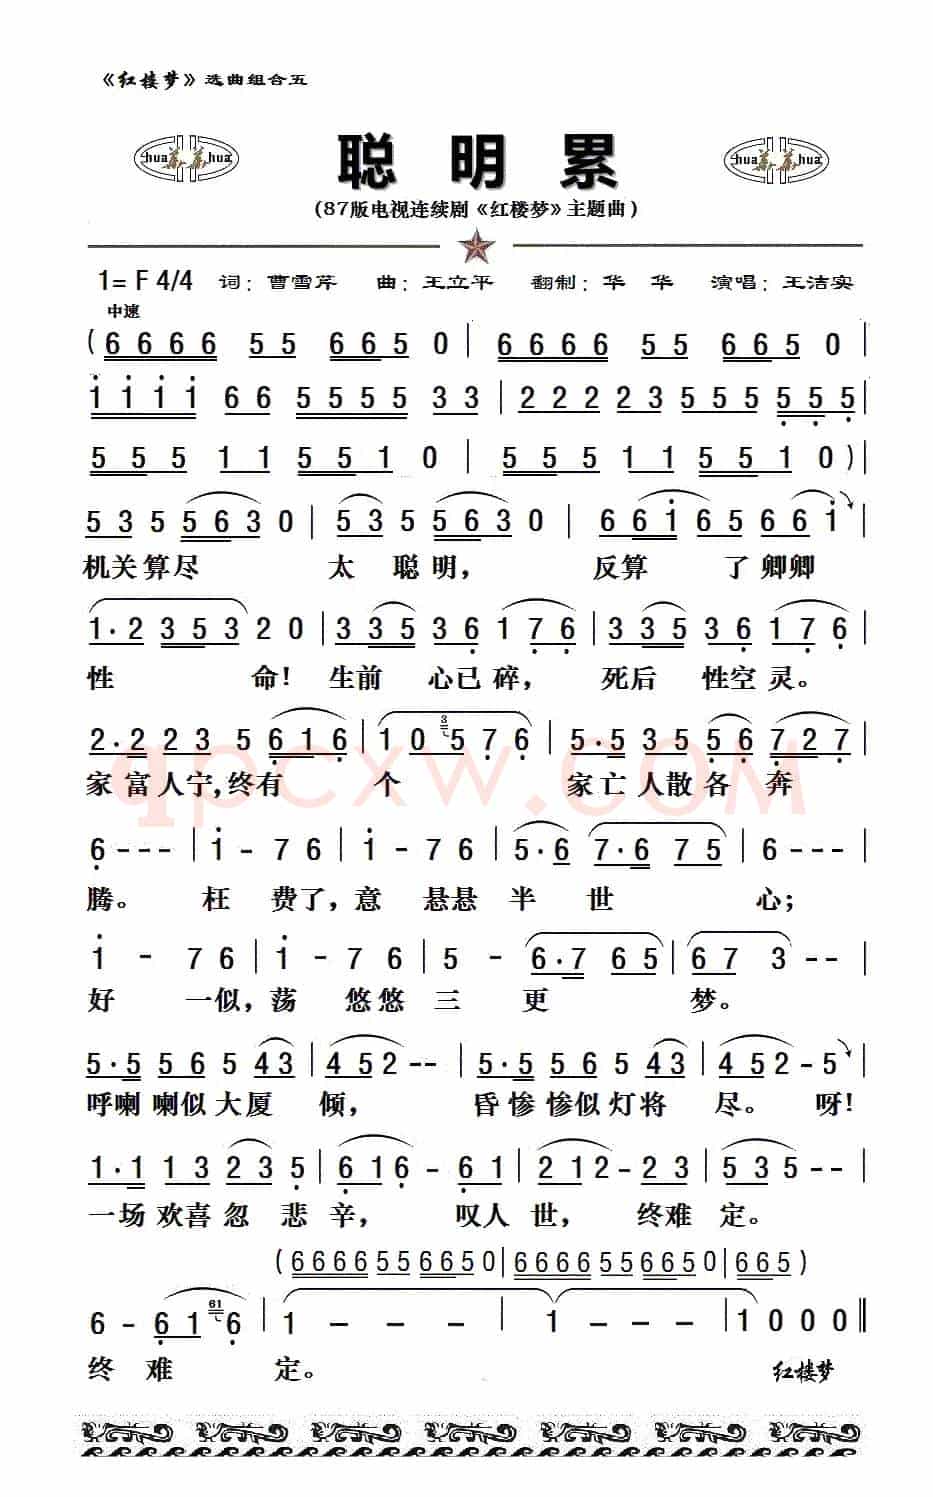 《红楼梦》选曲组合五
hua 华 华 hua 聪 明 累 hua 华 华 hua
(87版电视连续剧《红楼梦》主题曲)
1= F 4/4 词：曹雪芹 曲：王立平 翻制：华 华 演唱：王洁实
中速
( 6 6 6 6 5 5 6 6 5 0 | 6 6 6 6 5 5 6 6 5 0 |
1 1 1 1 6 6 5 5 5 5 3 3 | 2 2 2 2 3 5 5 5 5 5 5 |
5 5 5 1 1 5 5 1 0 | 5 5 5 1 1 5 5 1 0 ) |
5 3 5 5 6 3 0 | 5 3 5 5 6 3 0 | 6 6 i 6 5 6 6 i |
机关算尽 太 聪 明， 反算 了 卿卿
1 · 2 3 5 3 2 0 | 3 3 5 3 6 1 7 6 | 3 3 5 3 6 1 7 6 |
性 命！ 生前 心已 碎， 死后 性空 灵。
2 · 2 2 3 5 6 1 6 | 1 0 3 5 7 6 | 5 · 5 3 5 5 6 7 2 7 |
家 富人宁，终有 个 家亡人散各 奔
qpcxw.com
6 - - - | i - 7 6 | i - 7 6 | 5 · 6 7 · 6 7 5 | 6 - - - |
腾。 枉 费了，意 悬悬 半 世 心；
i - 7 6 | i - 7 6 | 5 - 6 · 7 6 5 | 6 7 3 - - |
好 一似，荡 悠悠 三 更 梦。
5 · 5 5 6 5 4 3 | 4 5 2 - - | 5 · 5 5 6 5 4 3 | 4 5 2 - 5 |
呼喇 喇似 大厦 倾， 昏惨 惨似 灯将 尽。 呀！
1 · 1 1 3 2 3 5 | 6 1 6 - 6 1 | 2 1 2 - 2 3 | 5 3 5 - - |
一场 欢喜 忽 悲 辛， 叹人 世， 终难 定。
( 6 6 6 6 5 5 6 6 5 0 | 6 6 6 6 5 5 6 6 5 0 | 6 6 5 )
6 - 6 1 61 6 | 1 - - - | 1 - - - | 1 0 0 0 ‖
终 难 定。 红楼梦